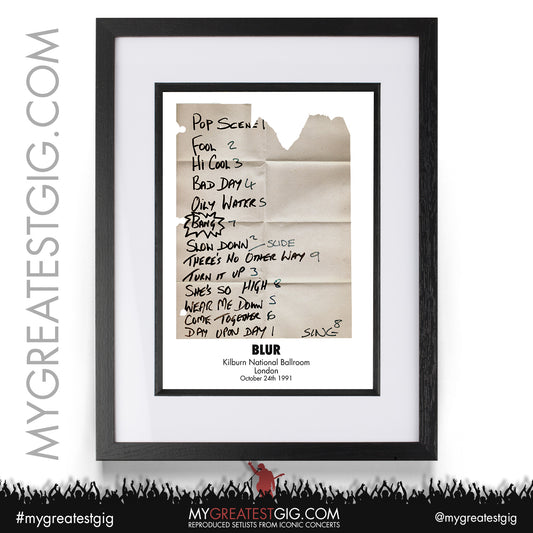 MYGREATESTGIG.COM
POP SCENE 1
FOOL 2
HI COOL 3
BAD DAY 4
OILY WATER 5
BANG 7
SLOW DOWN 2 SLIDE
THERE'S NO OTHER WAY 9
TURN IT UP 3
SHE'S SO HIGH 8
WEAR ME DOWN 5
COME TOGETHER 6
DAY UPON DAY 1 SING 8
BLUR
Kilburn National Ballroom
London
October 24th 1991
#mygreatestgig
MYGREATESTGIG.COM
REPRODUCED SETLISTS FROM ICONIC CONCERTS
@mygreatestgig